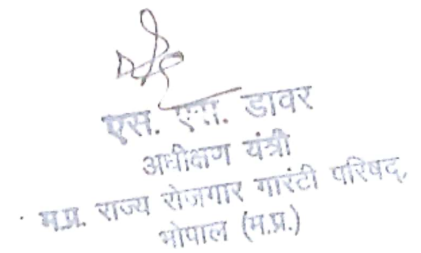 एस. एस. डावर
अधीक्षण यंत्री
म.प्र. राज्य रोजगार गारंटी परिषद्,
भोपाल (म.प्र.)